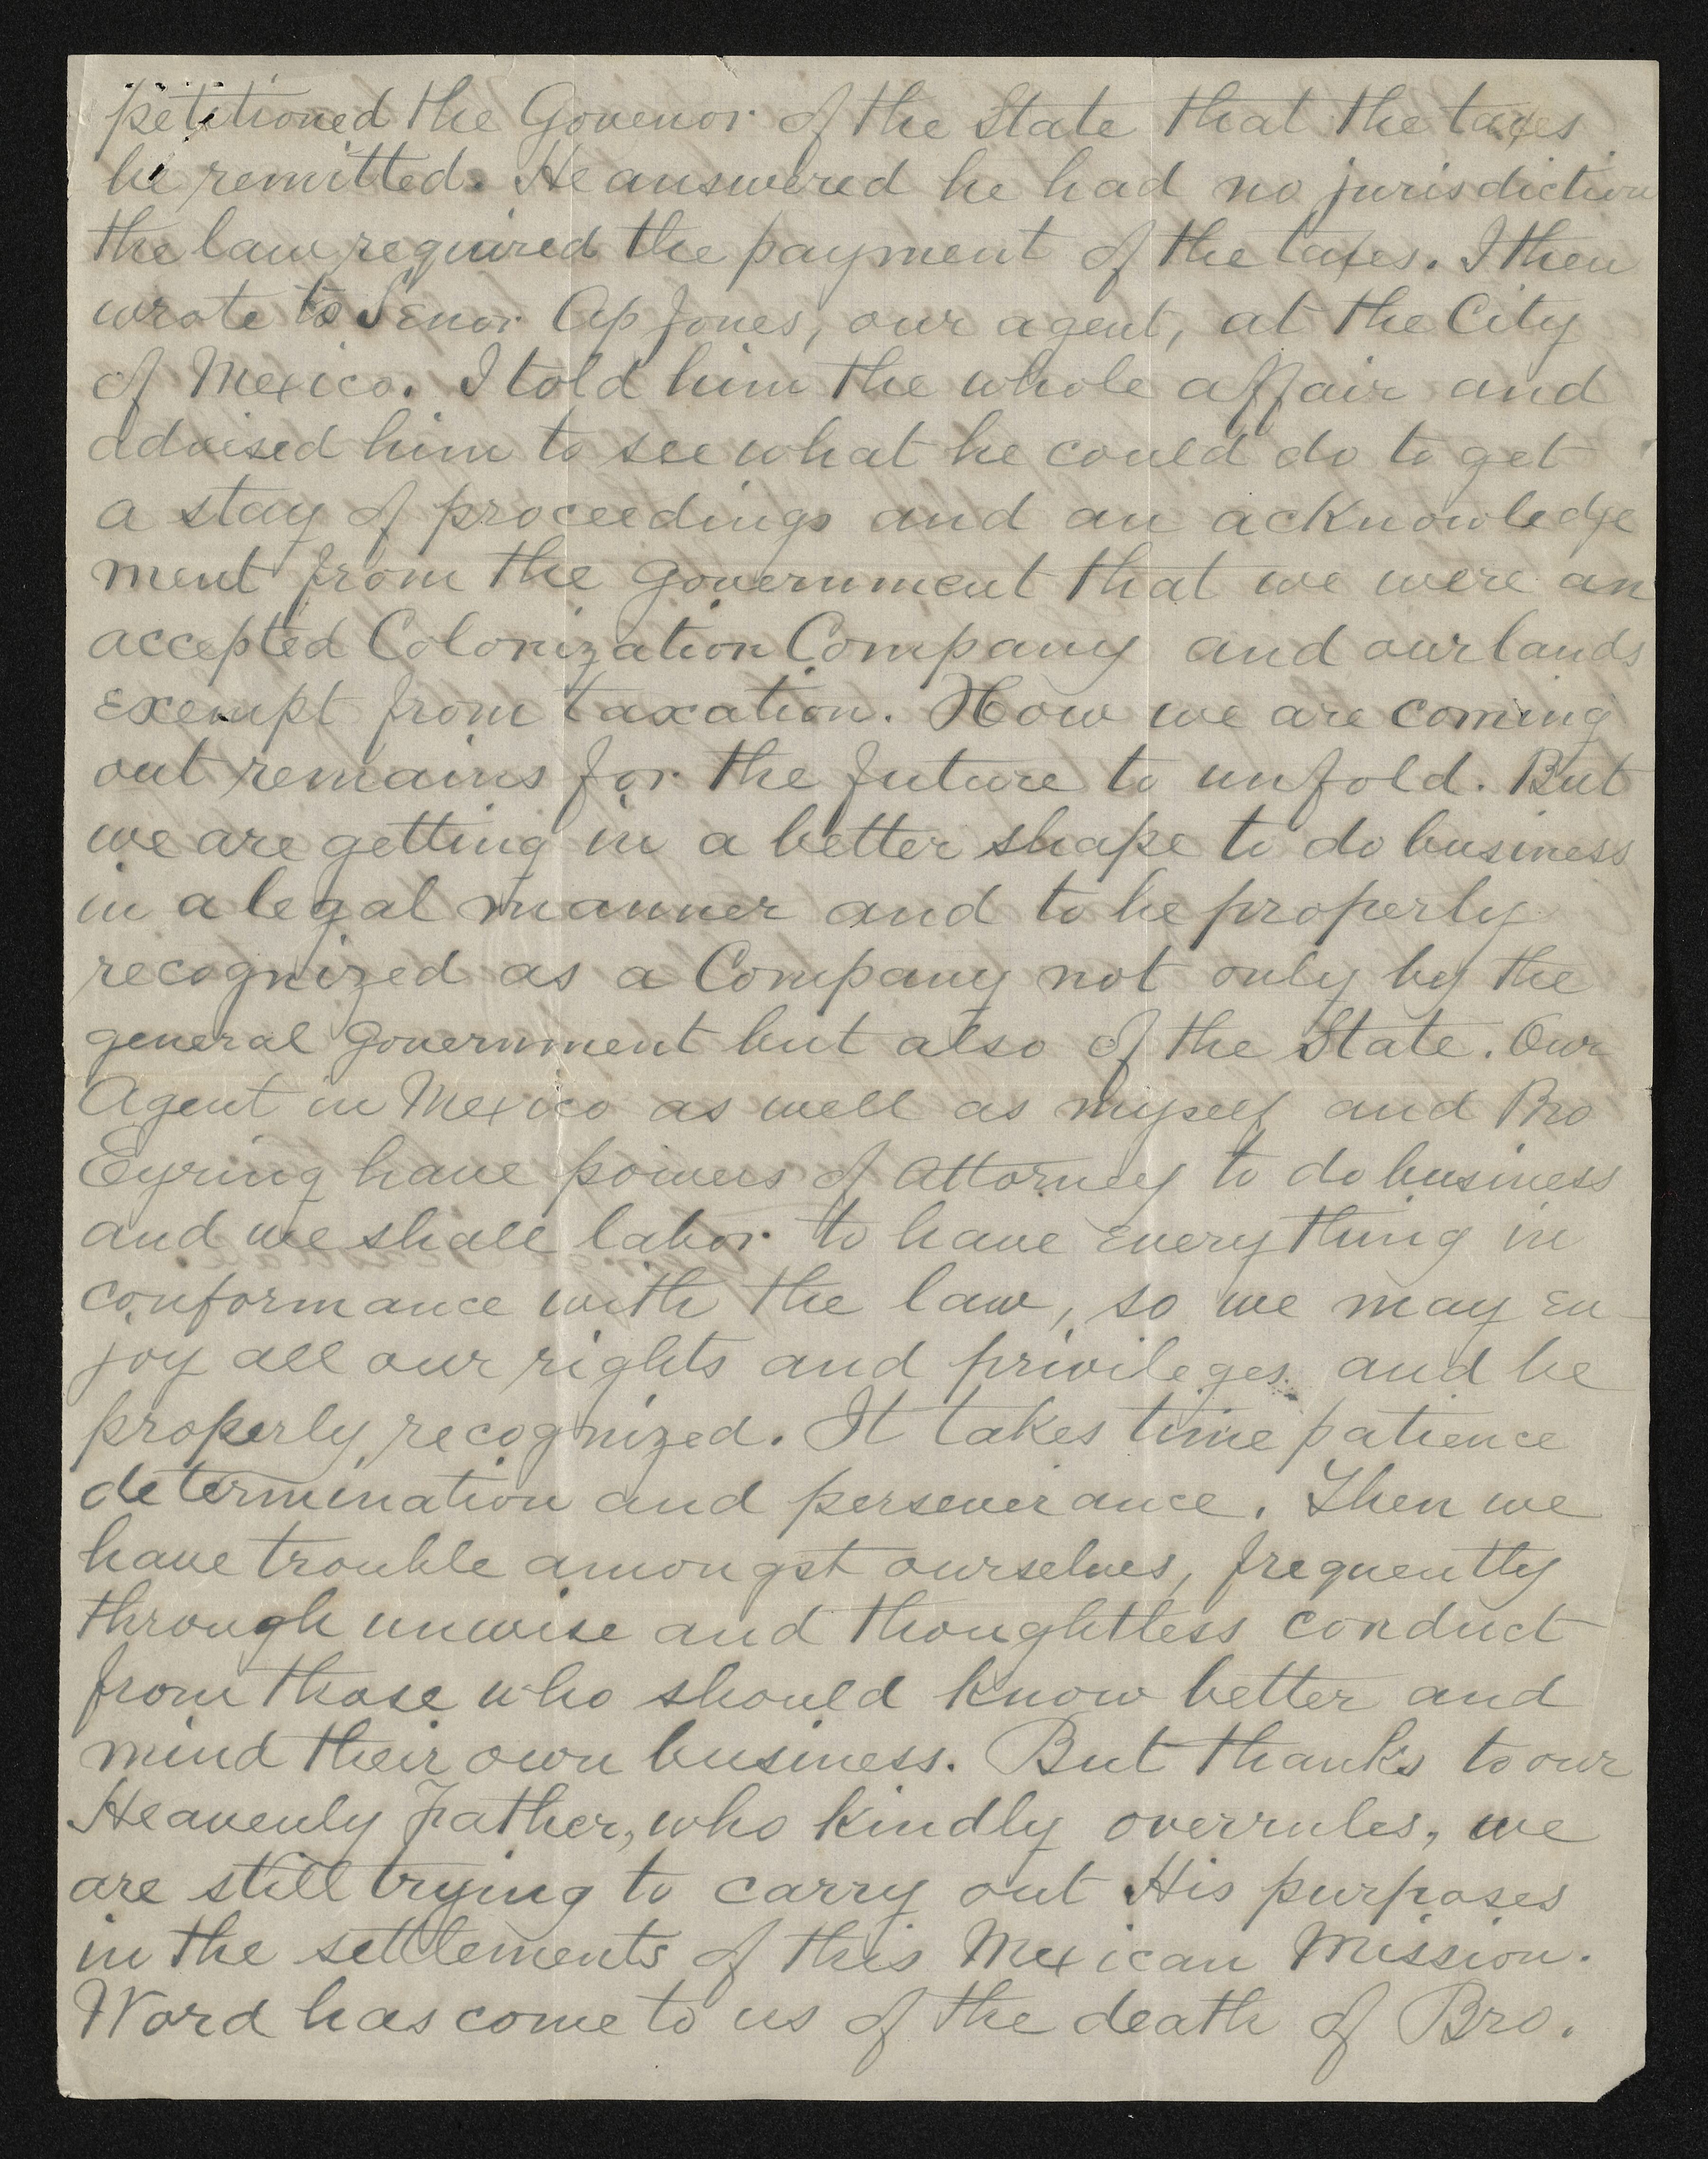 petitioned the Govenor of the State that the taxes
be remitted. He answered he had no jurisdiction
the law required the payment of the taxes. I then
wrote to Senor Ap Jones, our agent, at the City
of Mexico. I told him the whole affair and
advised him to see what he could do to get
a stay of proceedings and an acknowledge
ment from the government that we were an
accepted Colonization Company and our lands
exempt from taxation. How we are coming
out remains for the future to unfold. But
we are getting in a better shape to do business
in a legal manner and to be properly
recognized as a Company not only by the
general government but also of the State. Our
Agent in Mexico as well as myself and Bro
Eyring have powers of Attorney to do business
and we shall labor to have everything in
conformance with the law, so we may en-
joy all our rights and privileges and be
properly recognized. It takes time patience
determination and perseverance. Then we
have trouble amongst ourselves, frequently
through unwise and thoughtless conduct
from those who should know better and
mind their own business. But thanks to our
Heavenly Father, who kindly overrules, we
are still trying to carry out His purposes
in the settlements of this Mexican Mission.
Word has come to us of the death of Bro.